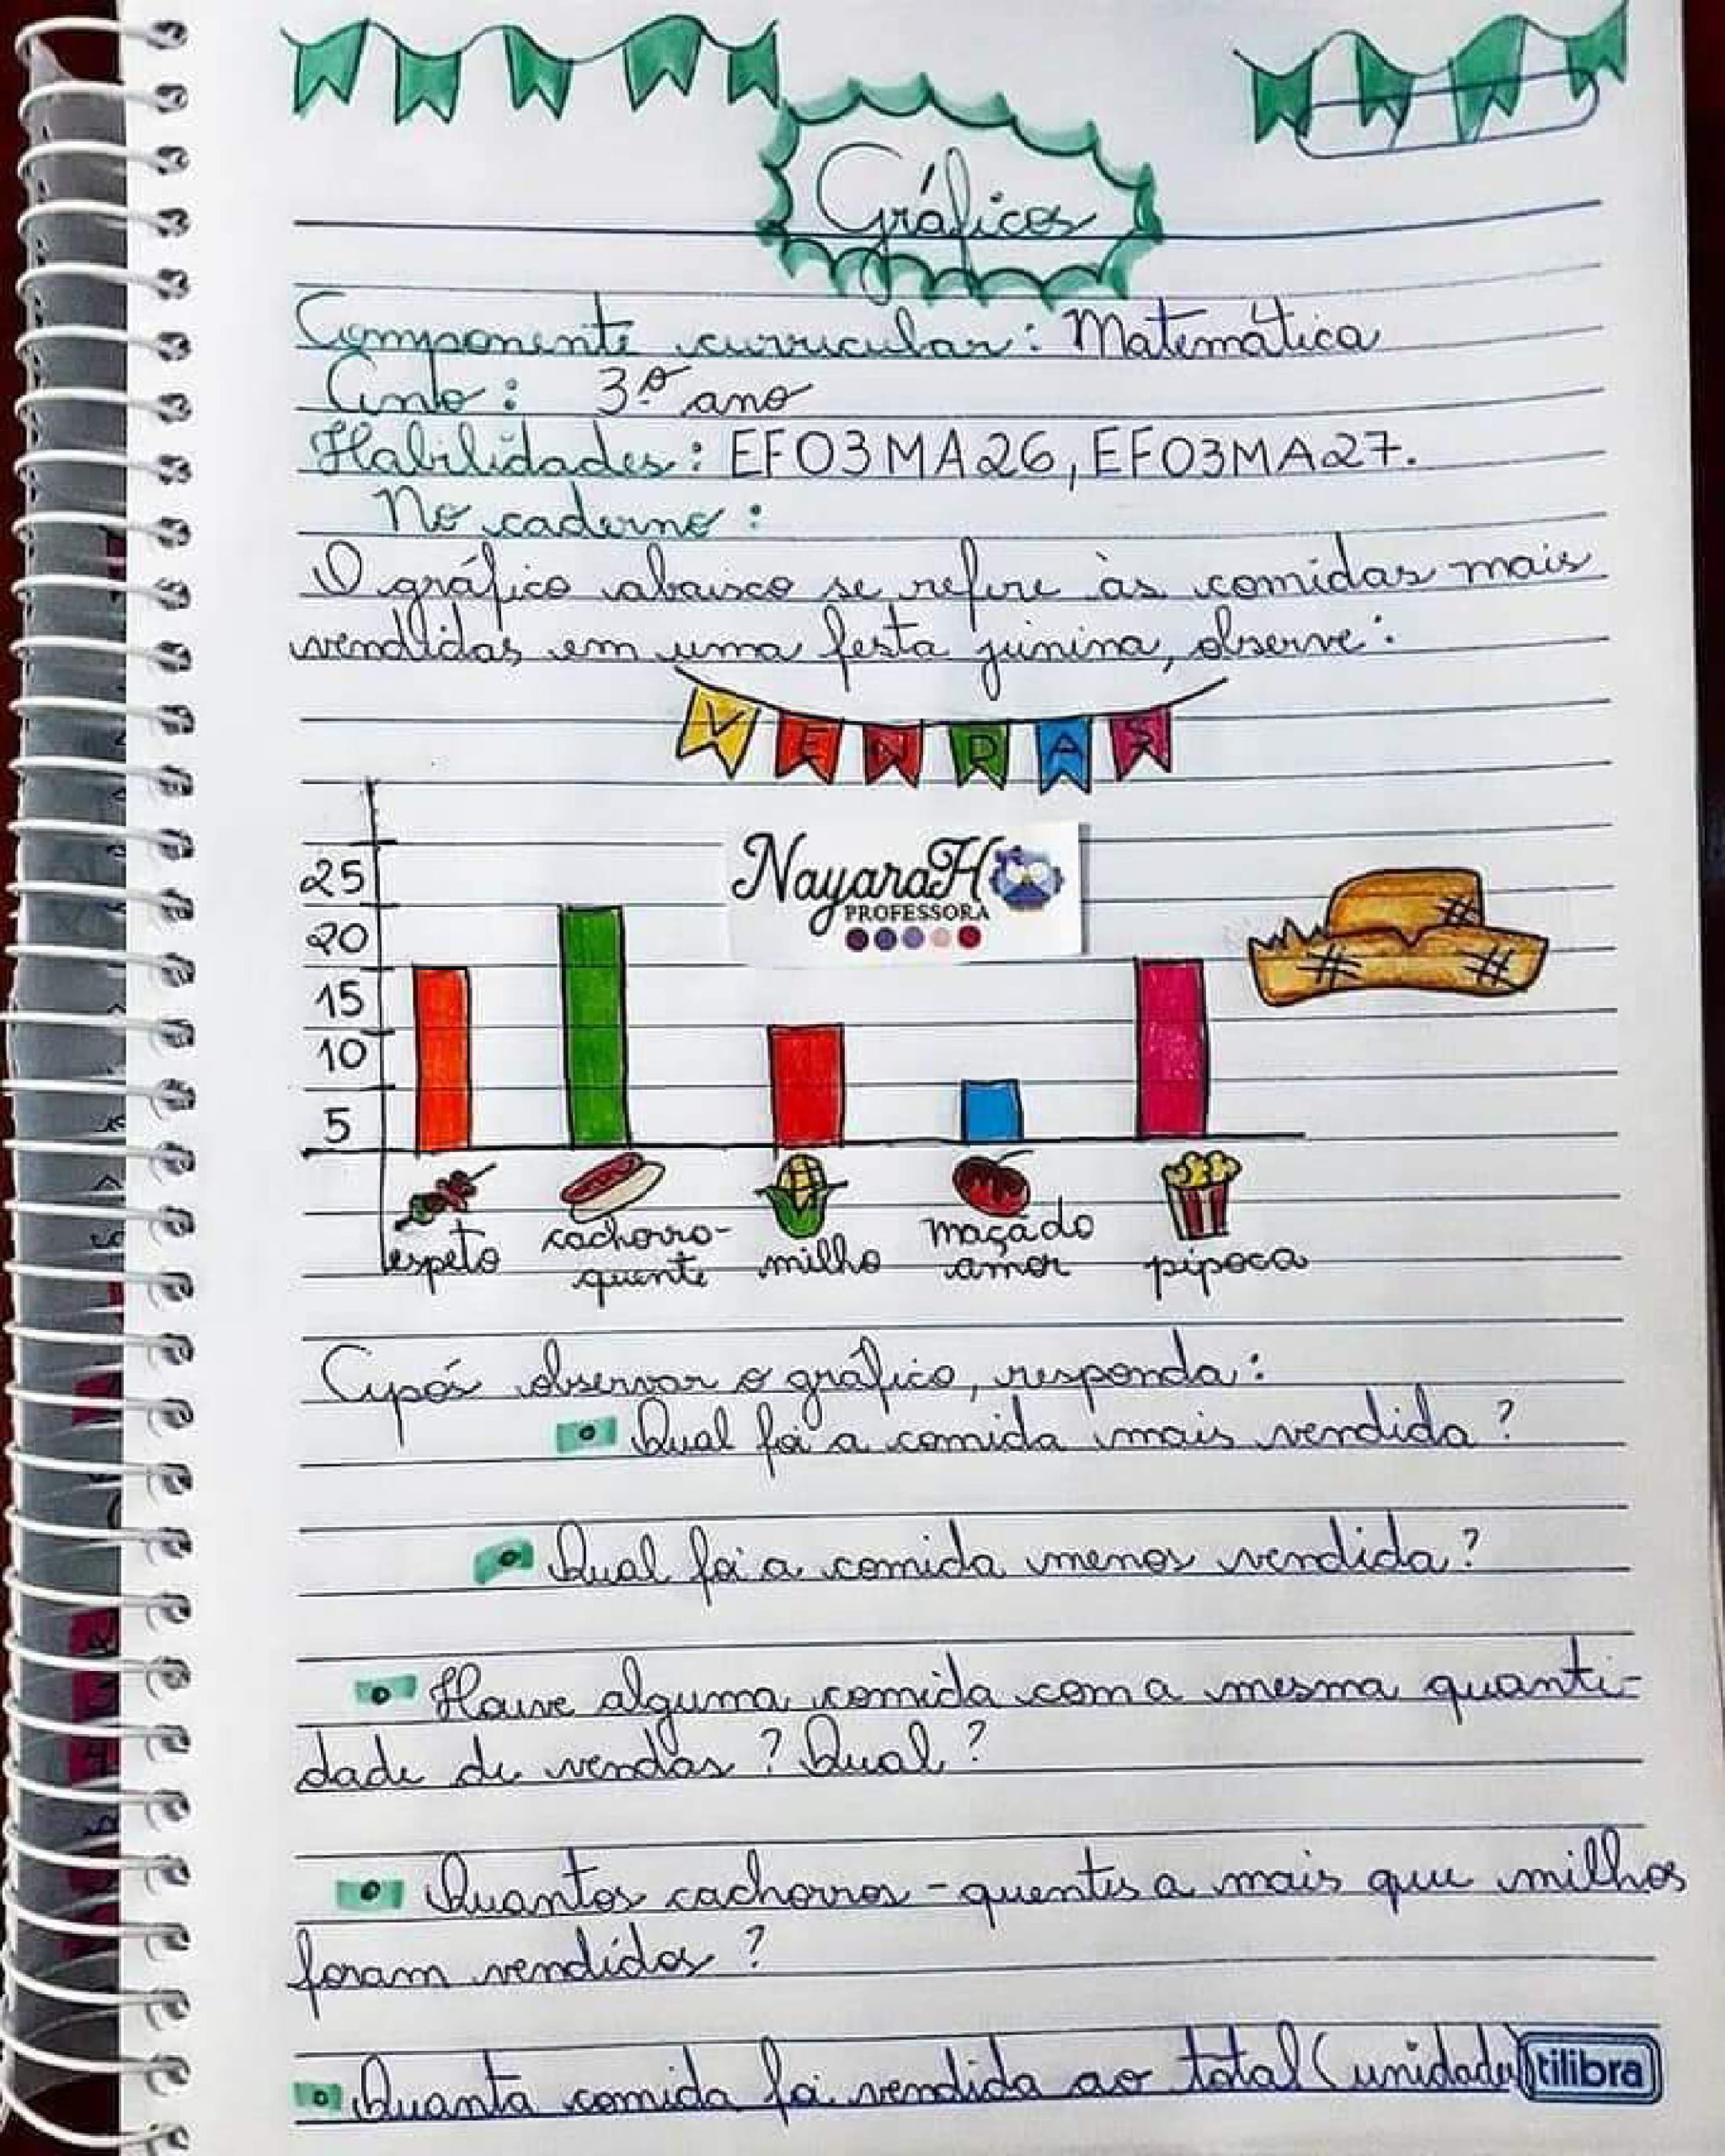 Gráficos
Componente curricular: Matemática
Ano: 3º ano
Habilidades: EF03MA26, EF03MA27.
No caderno:
O gráfico abaixo se refere às comidas mais
vendidas em uma festa junina, observe:
VENDAS
25
20
15
10
5
NayaraH
PROFESSORA
espeto
cachorro-
quente
milho
maçã do
amor
pipoca
Após observar o gráfico, responda:
• Qual foi a comida mais vendida?
• Qual foi a comida menos vendida?
• Houve alguma comida com a mesma quanti-
dade de vendas? Qual?
• Quantos cachorros-quentes a mais que milhos
foram vendidos?
• Quanta comida foi vendida ao total (unidade)
tilibra